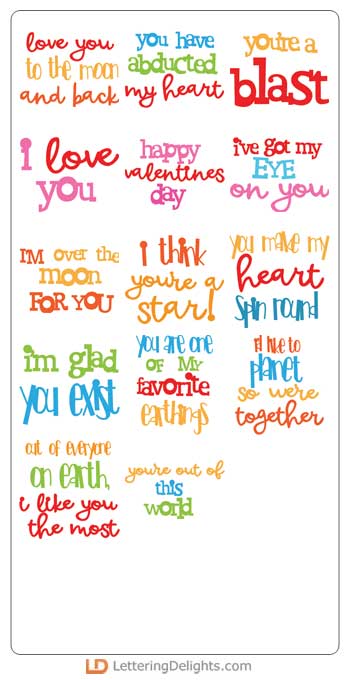 love you
to the moon
and back
you have
abducted
my heart
you're a
blast
i love
you
happy
valentines
day
i've got my
EYE
on you
I'M over the
moon
FOR YOU
i think
you're a
star!
you make my
heart
spin round
i'm glad
you exist
you are one
OF MY
favorite
earthings
i'd like to
planet
so we're
together
out of everyone
on earth,
i like you
the most
you're out of
this
world
LD LetteringDelights.com